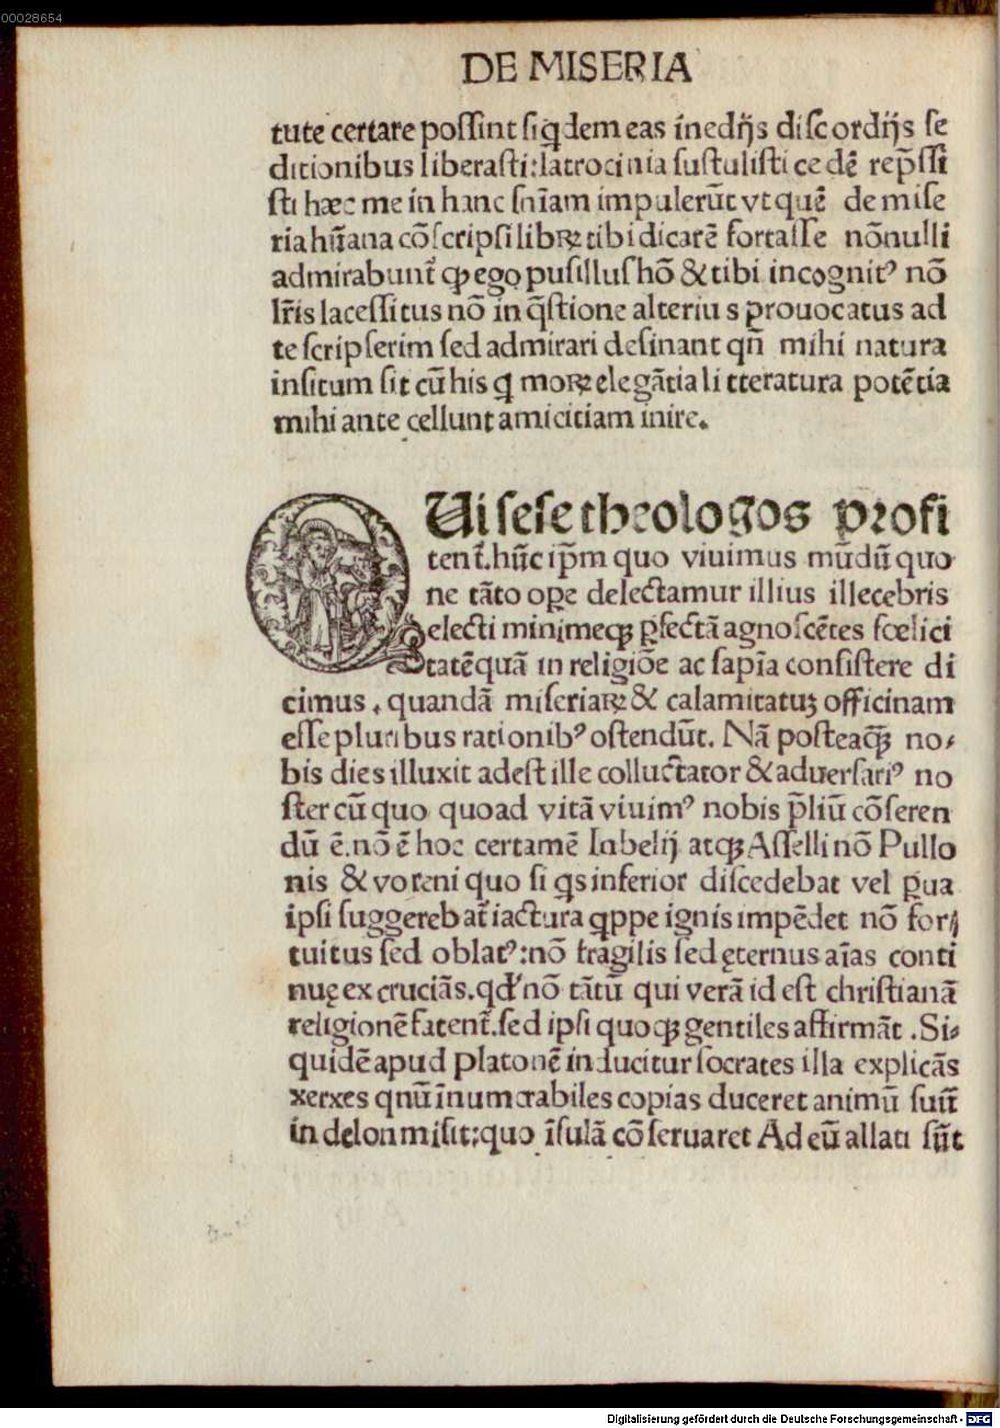 00028654
DE MISERIA
tute certare poſſint ſiq̃dem eas inedĳs diſcordĳs ſe
ditionibus liberaſti:latrocinia ſuſtuliſti cedē rep̄ſſi
ſti hæc me in hanc ſñiam impulerūt vt quē de miſe
ria hūana cōſcripſi libꝝ tibi dicarē fortaſſe nōnulli
admirabunt̃ ꝙ ego puſilluſ hō & tibi incognitꝰ nō
lr̃is laceſſitus nō in q̄ſtione alterius ꝓuocatus ad
te ſcripſerim ſed admirari deſinant qñ mihi natura
inſitum ſit cū his q̃ moꝝ elegātia litteratura potētia
mihi ante cellunt amicitiam inire.
QVi ſeſe theologos profi
tent̃.hūc ip̄m quo viuimus mūdū quo
ne tāto oꝑe delectamur illius illecebris
electi minimeqꝫ ꝑfectā agnoſcētes fœlici
tatē quā in religiōe ac ſapīa conſiſtere di
cimus, quandā miſeriaꝝ & calamitatuꝫ officinam
eſſe pluribus rationibꝰ oſtendūt. Nā poſteaq̄ꝫ no⸗
bis dies illuxit adeſt ille colluctator & aduerſariꝰ no
ſter cū quo quoad vitā viuimꝰ nobis p̄liū cōſeren
dū ē.nō ē hoc certamē Iubelĳ atqꝫ Aſſelli nō Pullo
nis & voreni quo ſi q̃s inferior diſcedebat vel ꝑua
ipſi ſuggerebat̃ iactura q̃ppe ignis impēdet nō for⸗
tuitus ſed oblatꝰ:nō fragilis ſed ęternus aīas conti
nuę ex cruciās.qđ nō tātū qui verā id eſt chriſtianā
religionē fatent̃.ſed ipſi quoqꝫ gentiles affirmāt .Si⸗
quidē apud platonē inducitur ſocrates illa explicās
xerxes qnū īnumerabiles copias duceret animū ſuū
in delon miſit:quo īſulā cōſeruaret Ad eū allati ſūt
Digitalisierung gefördert durch die Deutsche Forschungsgemeinschaft - DFG